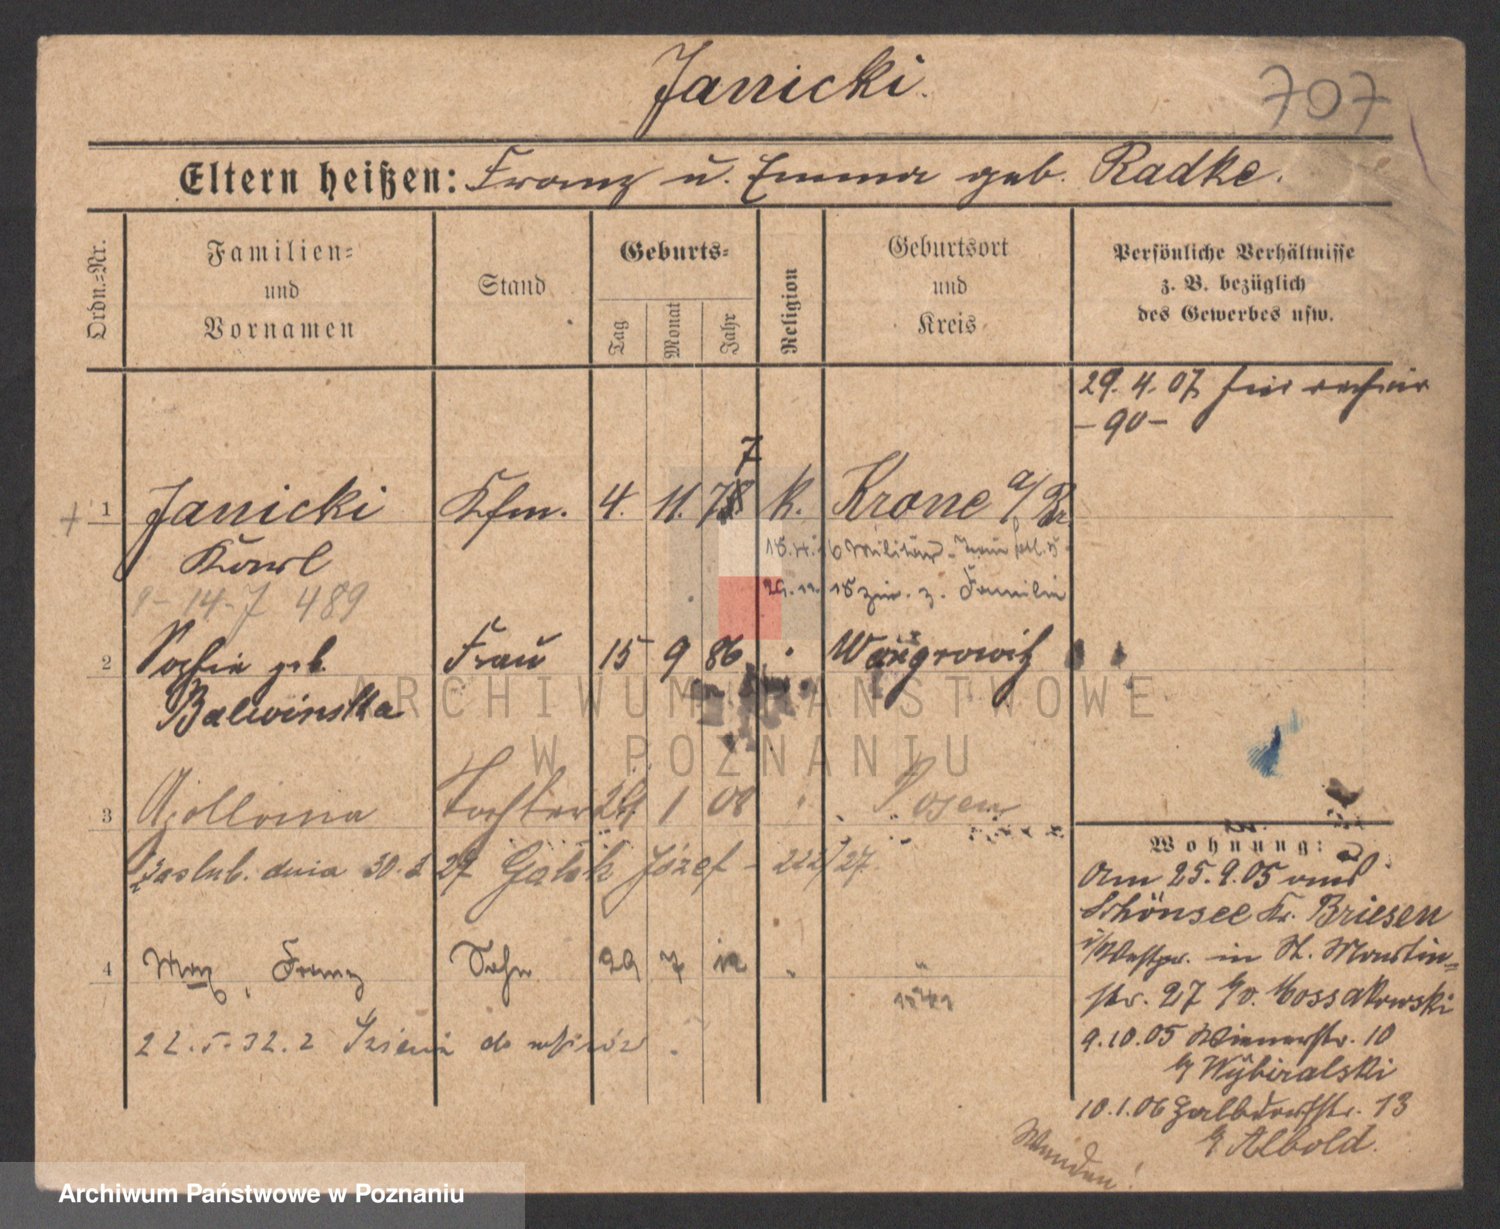 Janicki.
707
Eltern heißen: Franz u. Emma geb. Radke.
Ordn.-Nr.
Familien- und Vornamen
Stand
Geburts-
Tag
Monat
Jahr
Religion
Geburtsort und Kreis
Persönliche Verhältnisse z. B. bezüglich des Gewerbes usw.
29. 4. 07
-90-
1 Janicki Kfm. 4. 11. 78 7 k. Krone a/Br.
Karl
Militär
14-7 489
z. Familie
2 Sophie geb. Frau 15 9 86 " Wongrowitz
Balwinska
3 Apollonia Tochter 24 1 08 " Posen
zaslub. dnia 30. 27 Józef - 222/27
4 Max, Franz Sohn 29 7 12 " "
22.5.32.2
Wohnung:
Am 25.9.05 aus
Schönsee Kr. Briesen
i/Westpr. in St. Martin-
str. 27 b/v. Kossakowski
9.10.05 Wienerstr. 10
b/ Wybiralski
10.1.06 Halbdorfstr. 13
b/ Albold.
Wenden!
ARCHIWUM PAŃSTWOWE
W POZNANIU
Archiwum Państwowe w Poznaniu